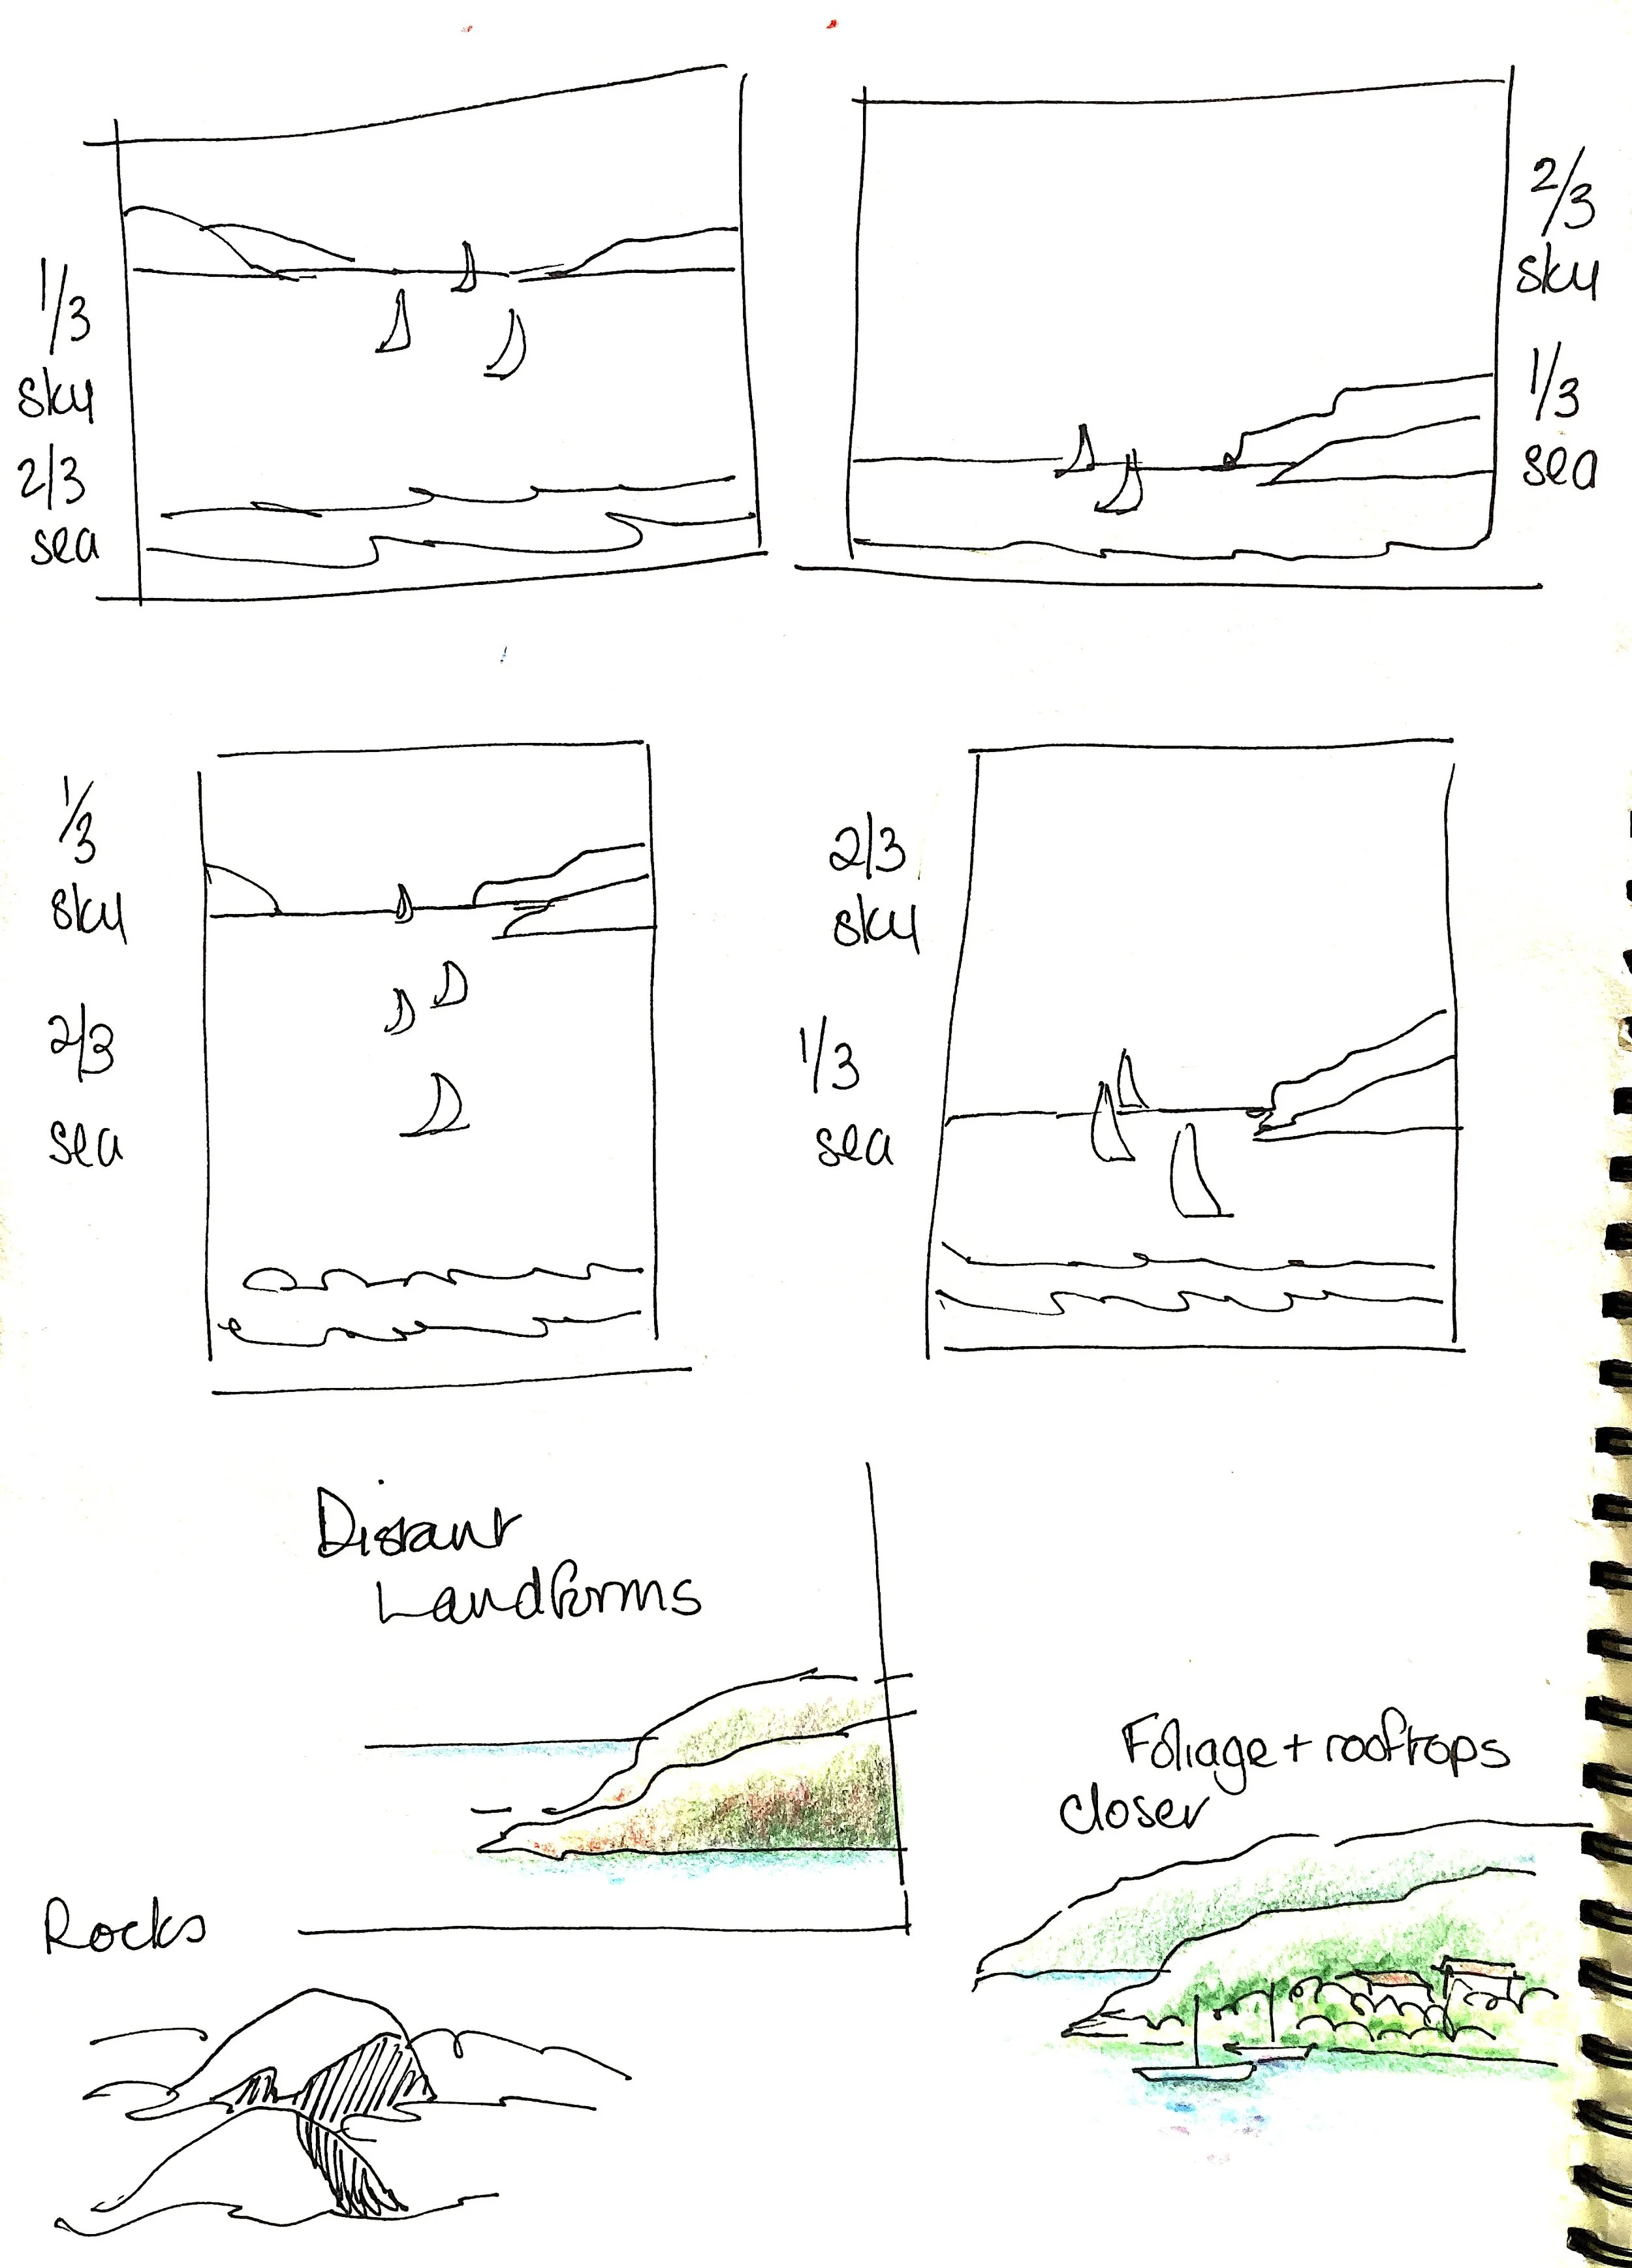 1/3
sky
2/3
sea
2/3
sky
1/3
sea
1/3
sky
2/3
sea
2/3
sky
1/3
sea
Distant
Landforms
Foliage + rooftops
closer
Rocks